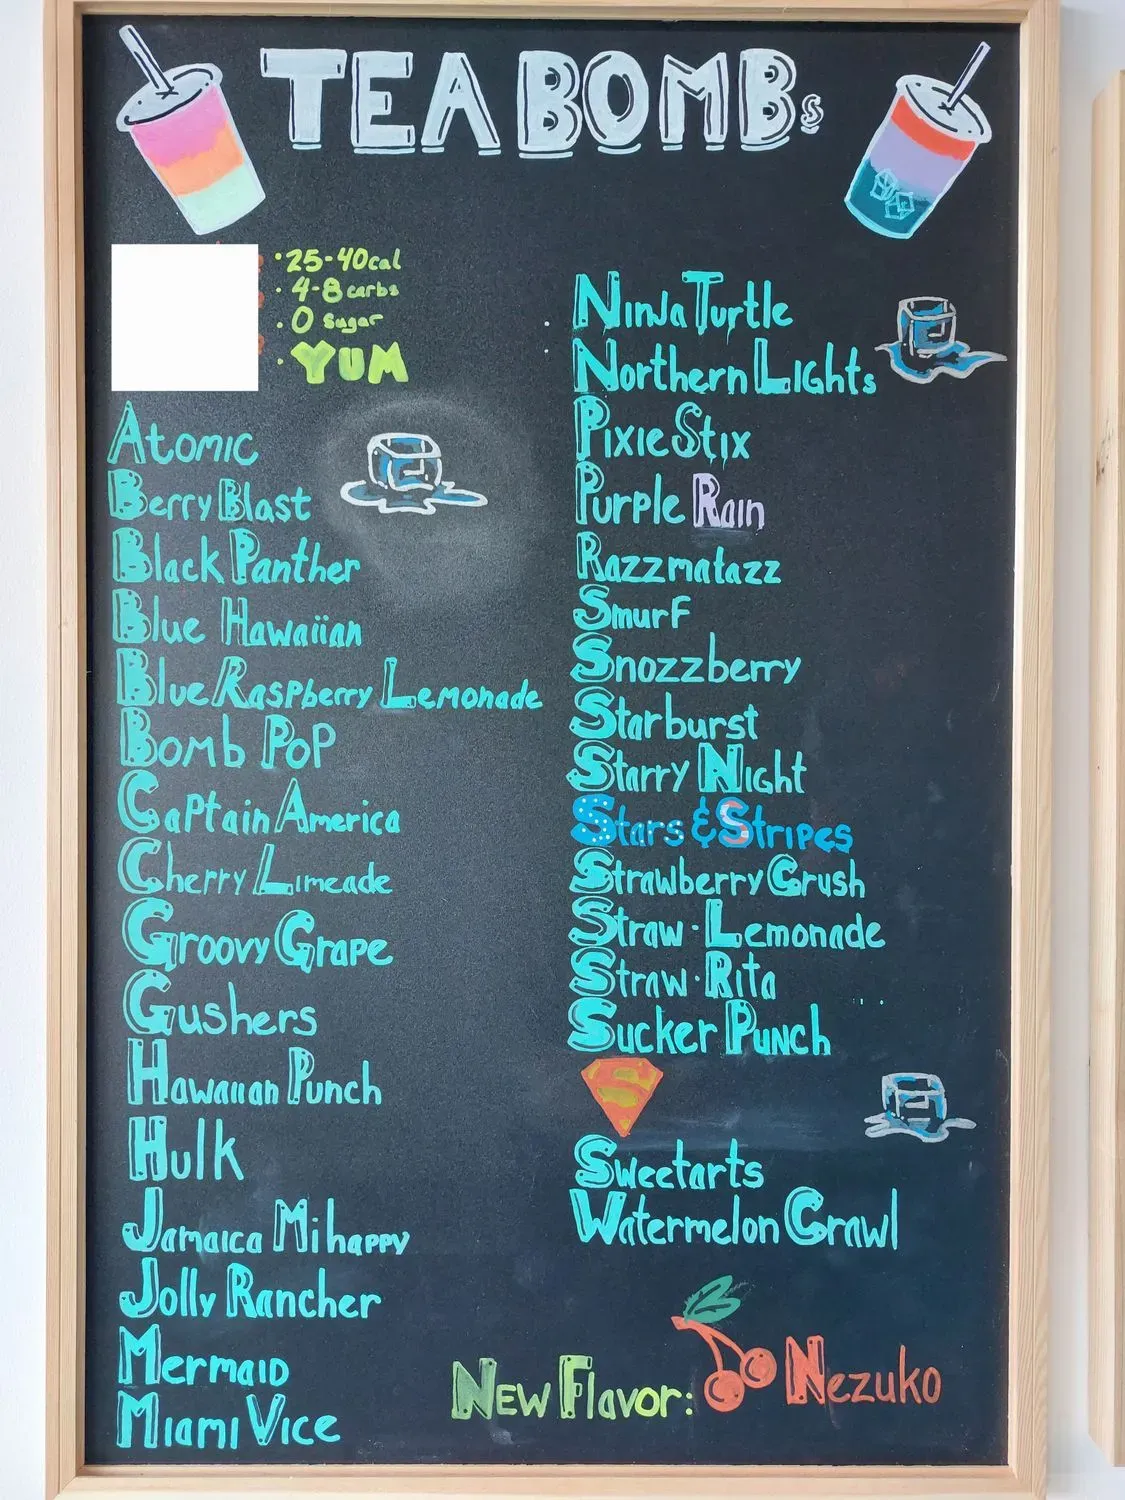 TEA BOMBs
· 25-40cal
· 4-8 carbs
· 0 sugar
· YUM
Atomic
Berry Blast
Black Panther
Blue Hawaiian
Blue Raspberry Lemonade
Bomb Pop
Captain America
Cherry Limeade
Groovy Grape
Gushers
Hawaiian Punch
Hulk
Jamaica Mihappy
Jolly Rancher
Mermaid
Miami Vice
Ninja Turtle
Northern Lights
Pixie Stix
Purple Rain
Razzmatazz
Smurf
Snozzberry
Starburst
Starry Night
Stars & Stripes
Strawberry Crush
Straw·Lemonade
Straw·Rita
Sucker Punch
S
Sweetarts
Watermelon Crawl
New Flavor: Nezuko